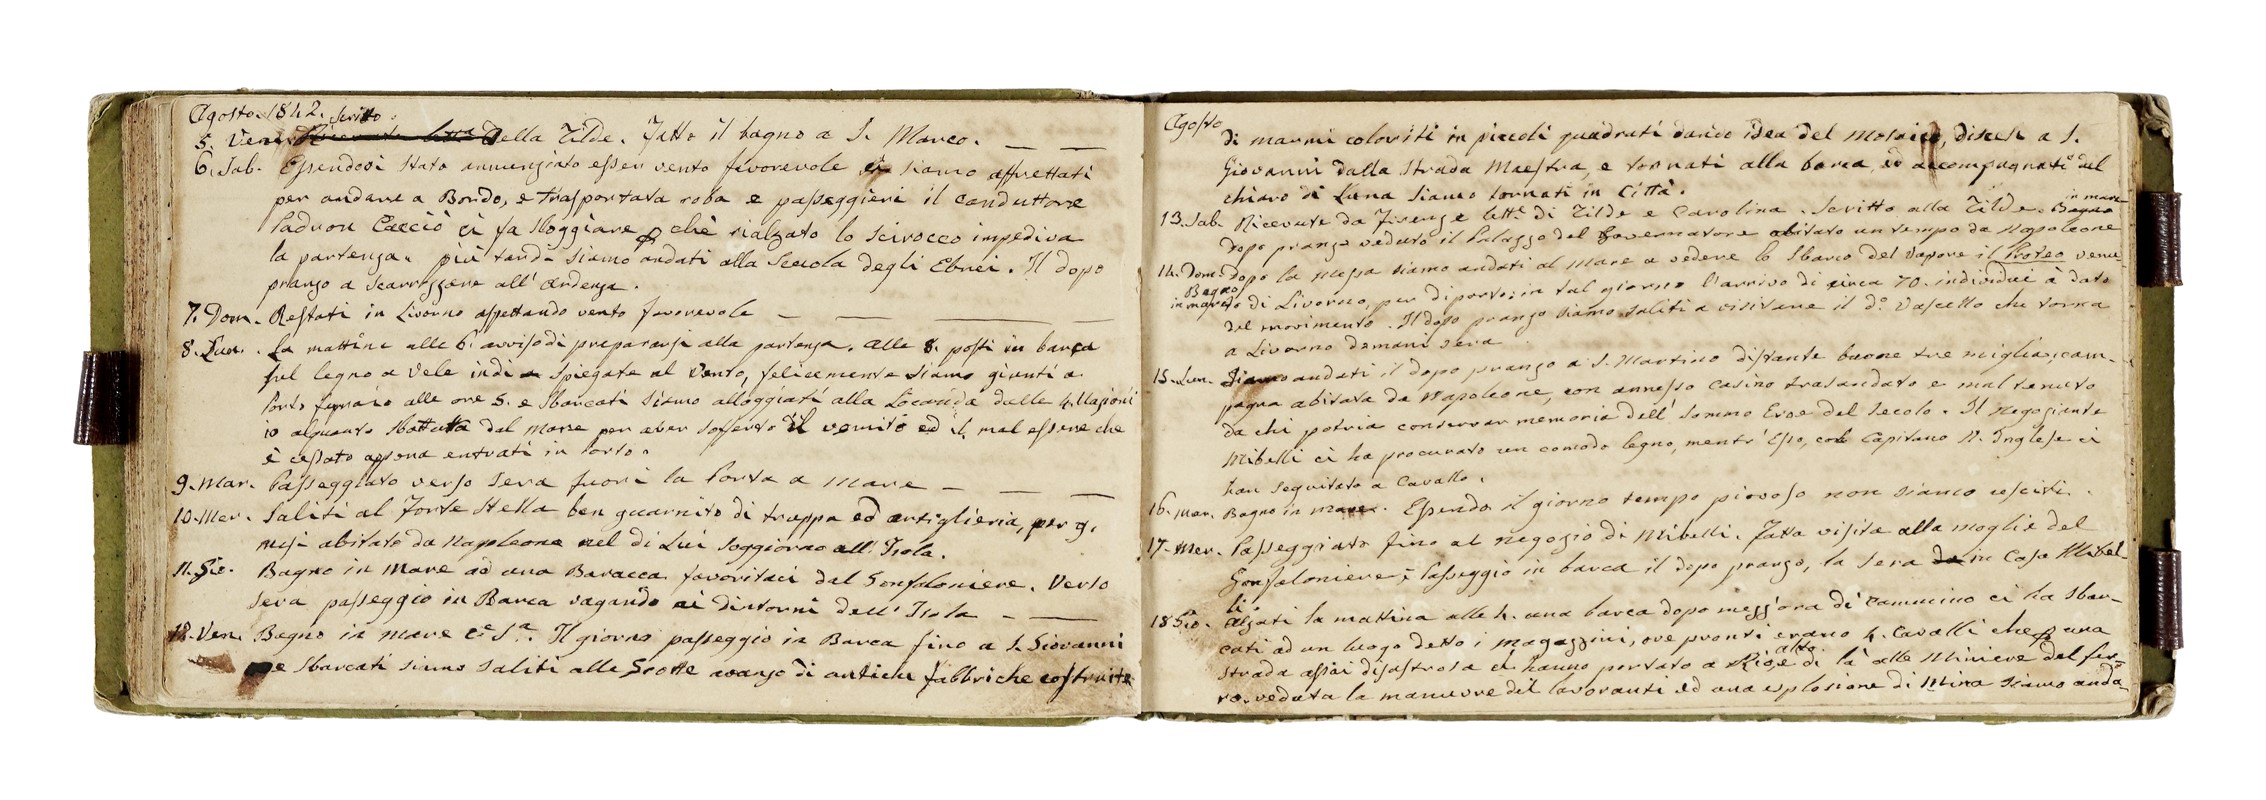 Agosto. 1842.
5. Ven. Scritto alla Tilde. Fatto il bagno a S. Marco.
6. Sab. Essendosi stato annunziato esser vento favorevole ci siamo affrettati
per andare a Bordo, e trasportata roba e passeggieri il conduttore
Padron Caccio ci fa sloggiare, chè rialzato lo scirocco impediva
la partenza. più tardi siamo andati alla Scuola degli Ebrei. Il dopo
pranzo a scarrozzare all' Ardenza.
7. Dom. Restati in Livorno aspettando vento favorevole
8. Lun. La mattina alle 6. avviso di prepararsi alla partenza. alle 8. posti in barca
sul legno a vele indi spiegate al vento, felicemente siamo giunti a
Porto ferraio alle ore 5. e sbarcati siamo alloggiati alla Locanda delle 4. Nazioni
io alquanto sbattuta dal mare per aver sofferto il vomito ed il mal essere che
è cessato appena entrati in Porto.
9. Mar. Passeggiato verso sera fuori la Porta a Mare
10. Mer. Saliti al Forte Stella ben guarnito di truppa ed artiglieria, per 9.
mesi abitato da Napoleone nel di Lui soggiorno all' Isola.
11. Gio. Bagno in Mare ad una Baracca favoritaci dal Gonfaloniere. Verso
sera passeggio in Barca vagando ai dintorni dell' Isola
12. Ven. Bagno in mare c.e S.a Il giorno passeggio in Barca fino a S. Giovanni
e sbarcati siamo saliti alle Grotte avanzo di antiche fabbriche costruite
Agosto
di marmi coloriti in piccoli quadrati danno idea del mosaico, discesi a S.
Giovanni dalla strada Maestra, e tornati alla barca, ed accompagnati dal
chiaro di Luna siamo tornati in Città.
13. Sab. Ricevute da Firenze lett.e di Tilde e Carolina. Scritto alla Tilde. Bagno in mare
dopo pranzo veduto il Palazzo del Governatore abitato un tempo da Napoleone
14. Dom. Dopo la Messa siamo andati al Mare a vedere lo sbarco del Vapore il Proteo venu-
Bagno in mare
to di Livorno, per diporto: in tal giorno l'arrivo di circa 70. individui à dato
del movimento. Il dopo pranzo siamo saliti a visitare il d.o Vascello che torna
a Livorno domani sera.
15. Lun. Siamo andati il dopo pranzo a S. Martino distante buone tre miglia, cam-
pagna abitata da Napoleone, con annesso casino trasandato e mal tenuto
da chi potria conservar memoria dell' sommo Eroe del secolo. Il Negoziante
Mibelli ci ha procurato un comodo legno, mentr' Esso, col Capitano N. Inglese ci
han seguitato a Cavallo.
16. Mar. Bagno in mare. Essendo il giorno tempo piovoso non siamo usciti.
17. Mer. Passeggiato fino al negozio di Mibelli. Fatta visita alla moglie del
Gonfaloniere; Passeggio in barca il dopo pranzo, la sera in Casa Mibel-
li
18. Gio. Alzati la mattina alle 4. una barca dopo mezz'ora di cammino ci ha sbar-
cati ad un luogo detto i Magazzini, ove pronti erano 4. Cavalli che p una
strada assai disastrosa ci hanno portato a Rio alto e di là alle Miniere del fer-
ro. veduta la manuvre dei lavoranti ed una esplosione di Mina siamo anda-